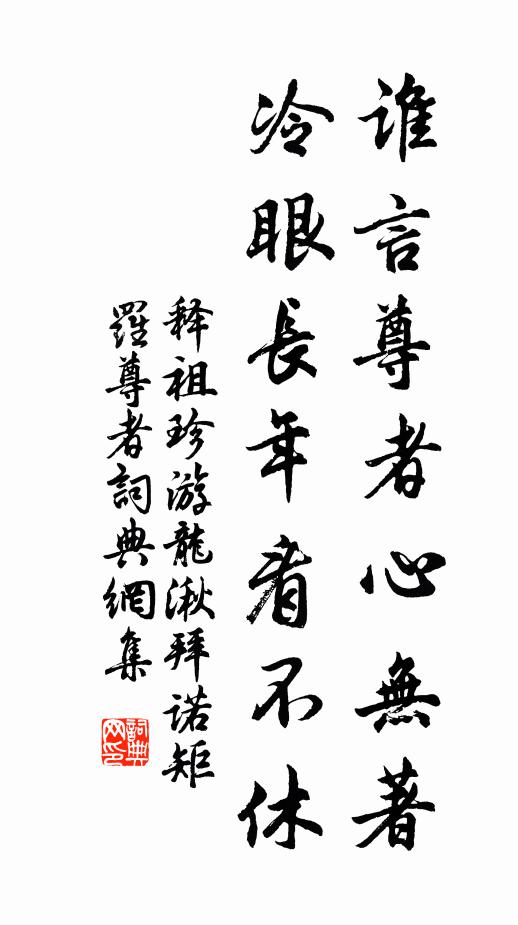 谁言尊者心無著
冷眼長年看不休
释祖珍游龍湫拜诺矩
羅尊者詞典網集
詞典网印